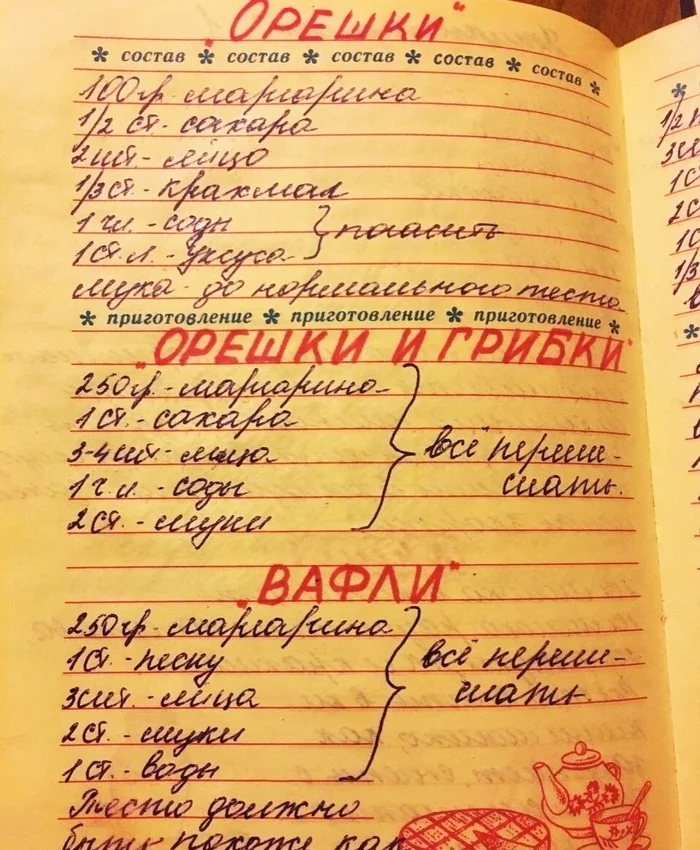 „ОРЕШКИ"
* состав * состав * состав * состав * состав *
100гр. маргарина
1/2 ст. - сахара
2 шт. - яйцо
1/3 ст. - крахмал
1 ч.л. - соды } погасить
1 ст. л. - уксуса
мука - до нормального теста
* приготовление * приготовление * приготовление *
„ОРЕШКИ И ГРИБКИ"
250гр. - маргарина
1 ст. - сахара
3-4 шт. - яйца
1 ч.л. - соды
2 ст. - муки
всё переме-
шать.
„ВАФЛИ"
250гр. - маргарина
1 ст. - песку
3 шт. - яйца
2 ст. - муки
1 ст. - воды
всё переме-
шать.
Тесто должно
быть похоже как